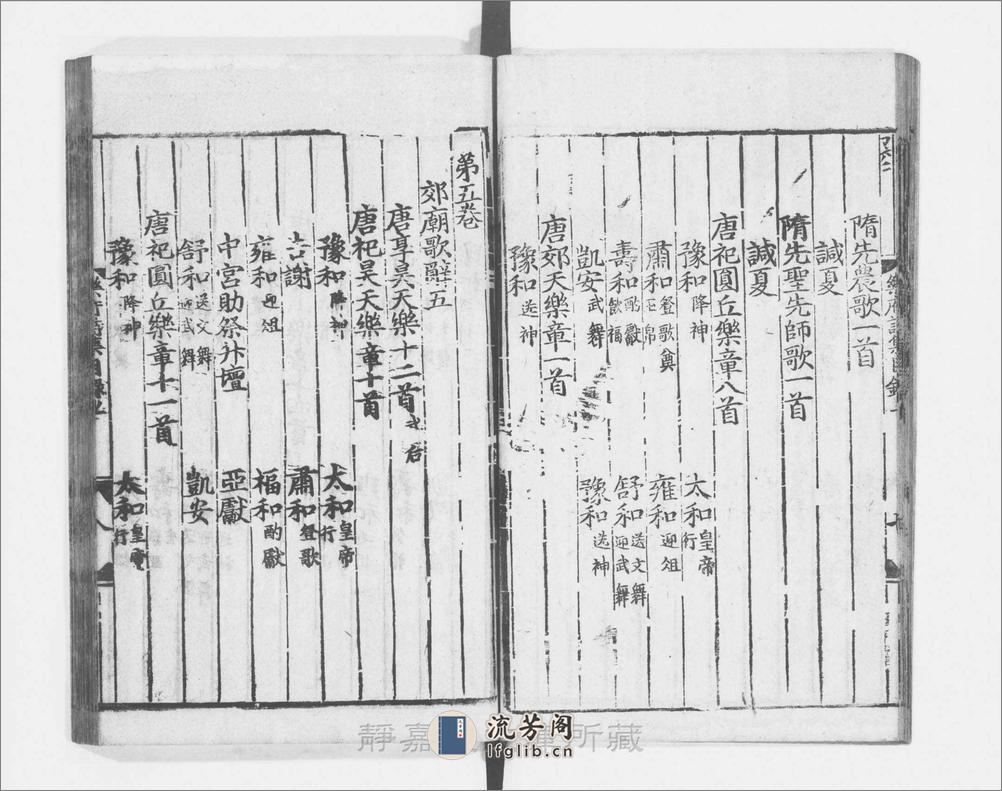 隋先農歌一首
諴夏
隋先聖先師歌一首
諴夏
唐祀圓丘樂章八首
豫和降神 太和皇帝行
肅和登歌奠玉帛 雍和迎俎
壽和酌獻飲福 舒和送文舞迎武舞
凱安武舞 豫和送神
唐郊天樂章一首
豫和送神
第五卷
郊廟歌辭五
唐享昊天樂十二首武后
唐祀昊天樂章十首
豫和降神 太和皇帝行
告謝 肅和登歌
雍和迎俎 福和酌獻
中宮助祭升壇 亞獻
舒和送文舞迎武舞 凱安
唐祀圓丘樂章十一首
豫和降神 太和皇帝行
靜嘉 所藏
流芳阁
lfglib.cn